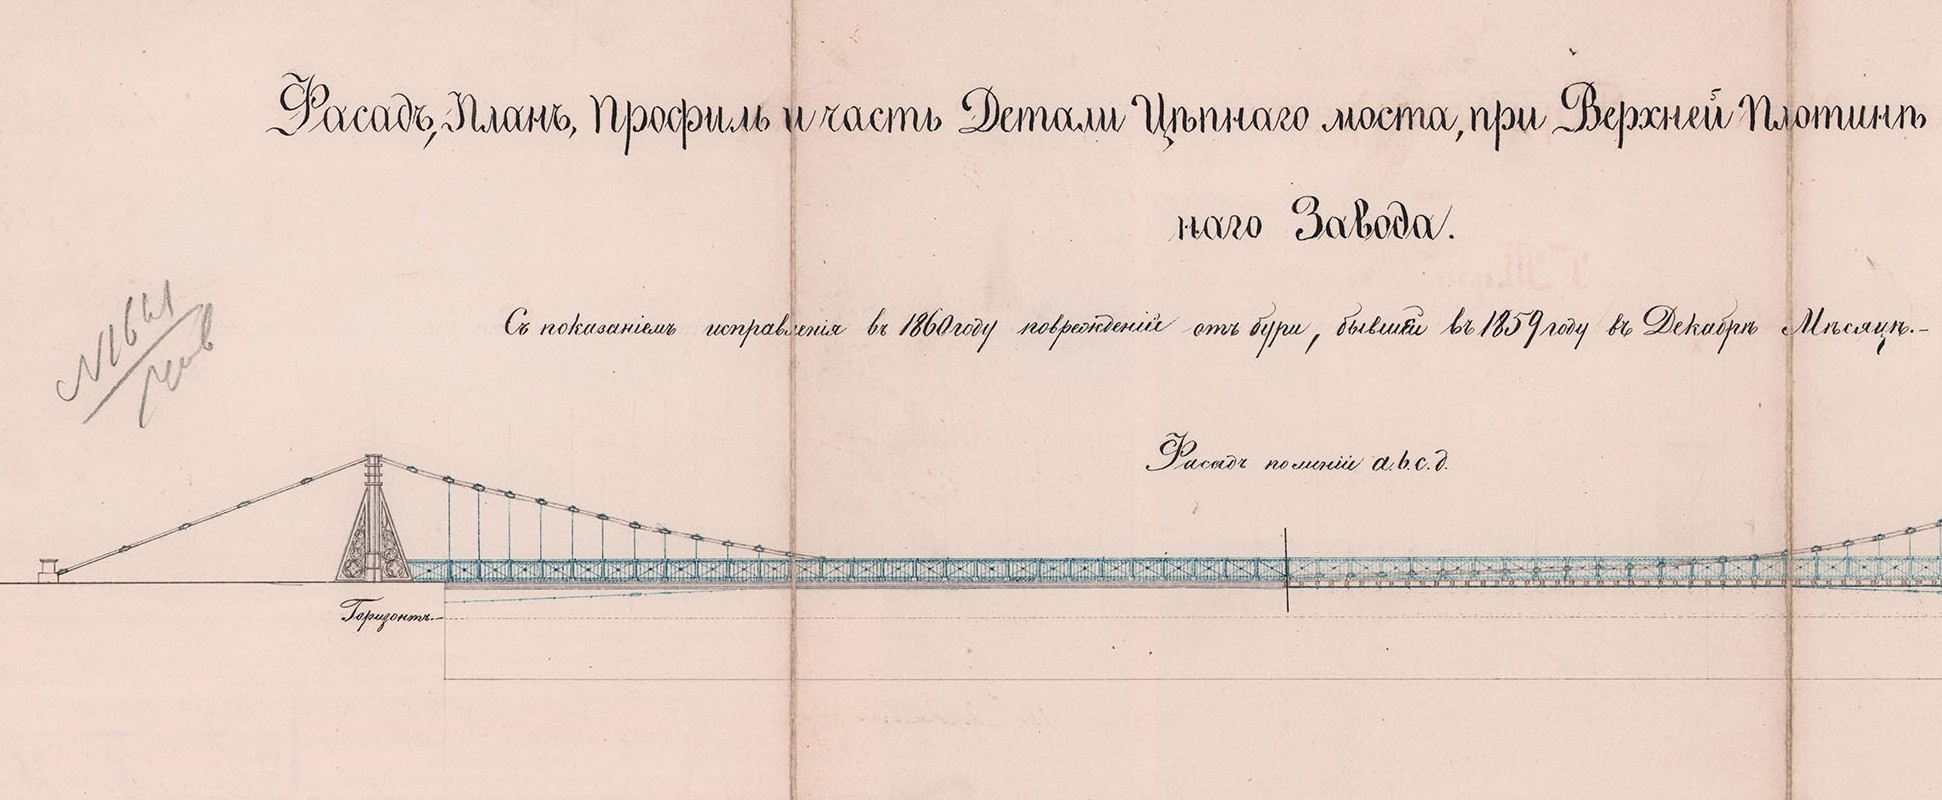 Фасадъ, Планъ, Профиль и часть Детали Цѣпнаго моста, при Верхней Плотинѣ
наго Завода.
Съ показаніемъ исправленія въ 1860 году поврежденій отъ бури, бывшей въ 1859 году въ Декабрѣ Мѣсяцѣ.-
№1641
Фасадъ по линіи a.b.c.d.
Горизонтъ.